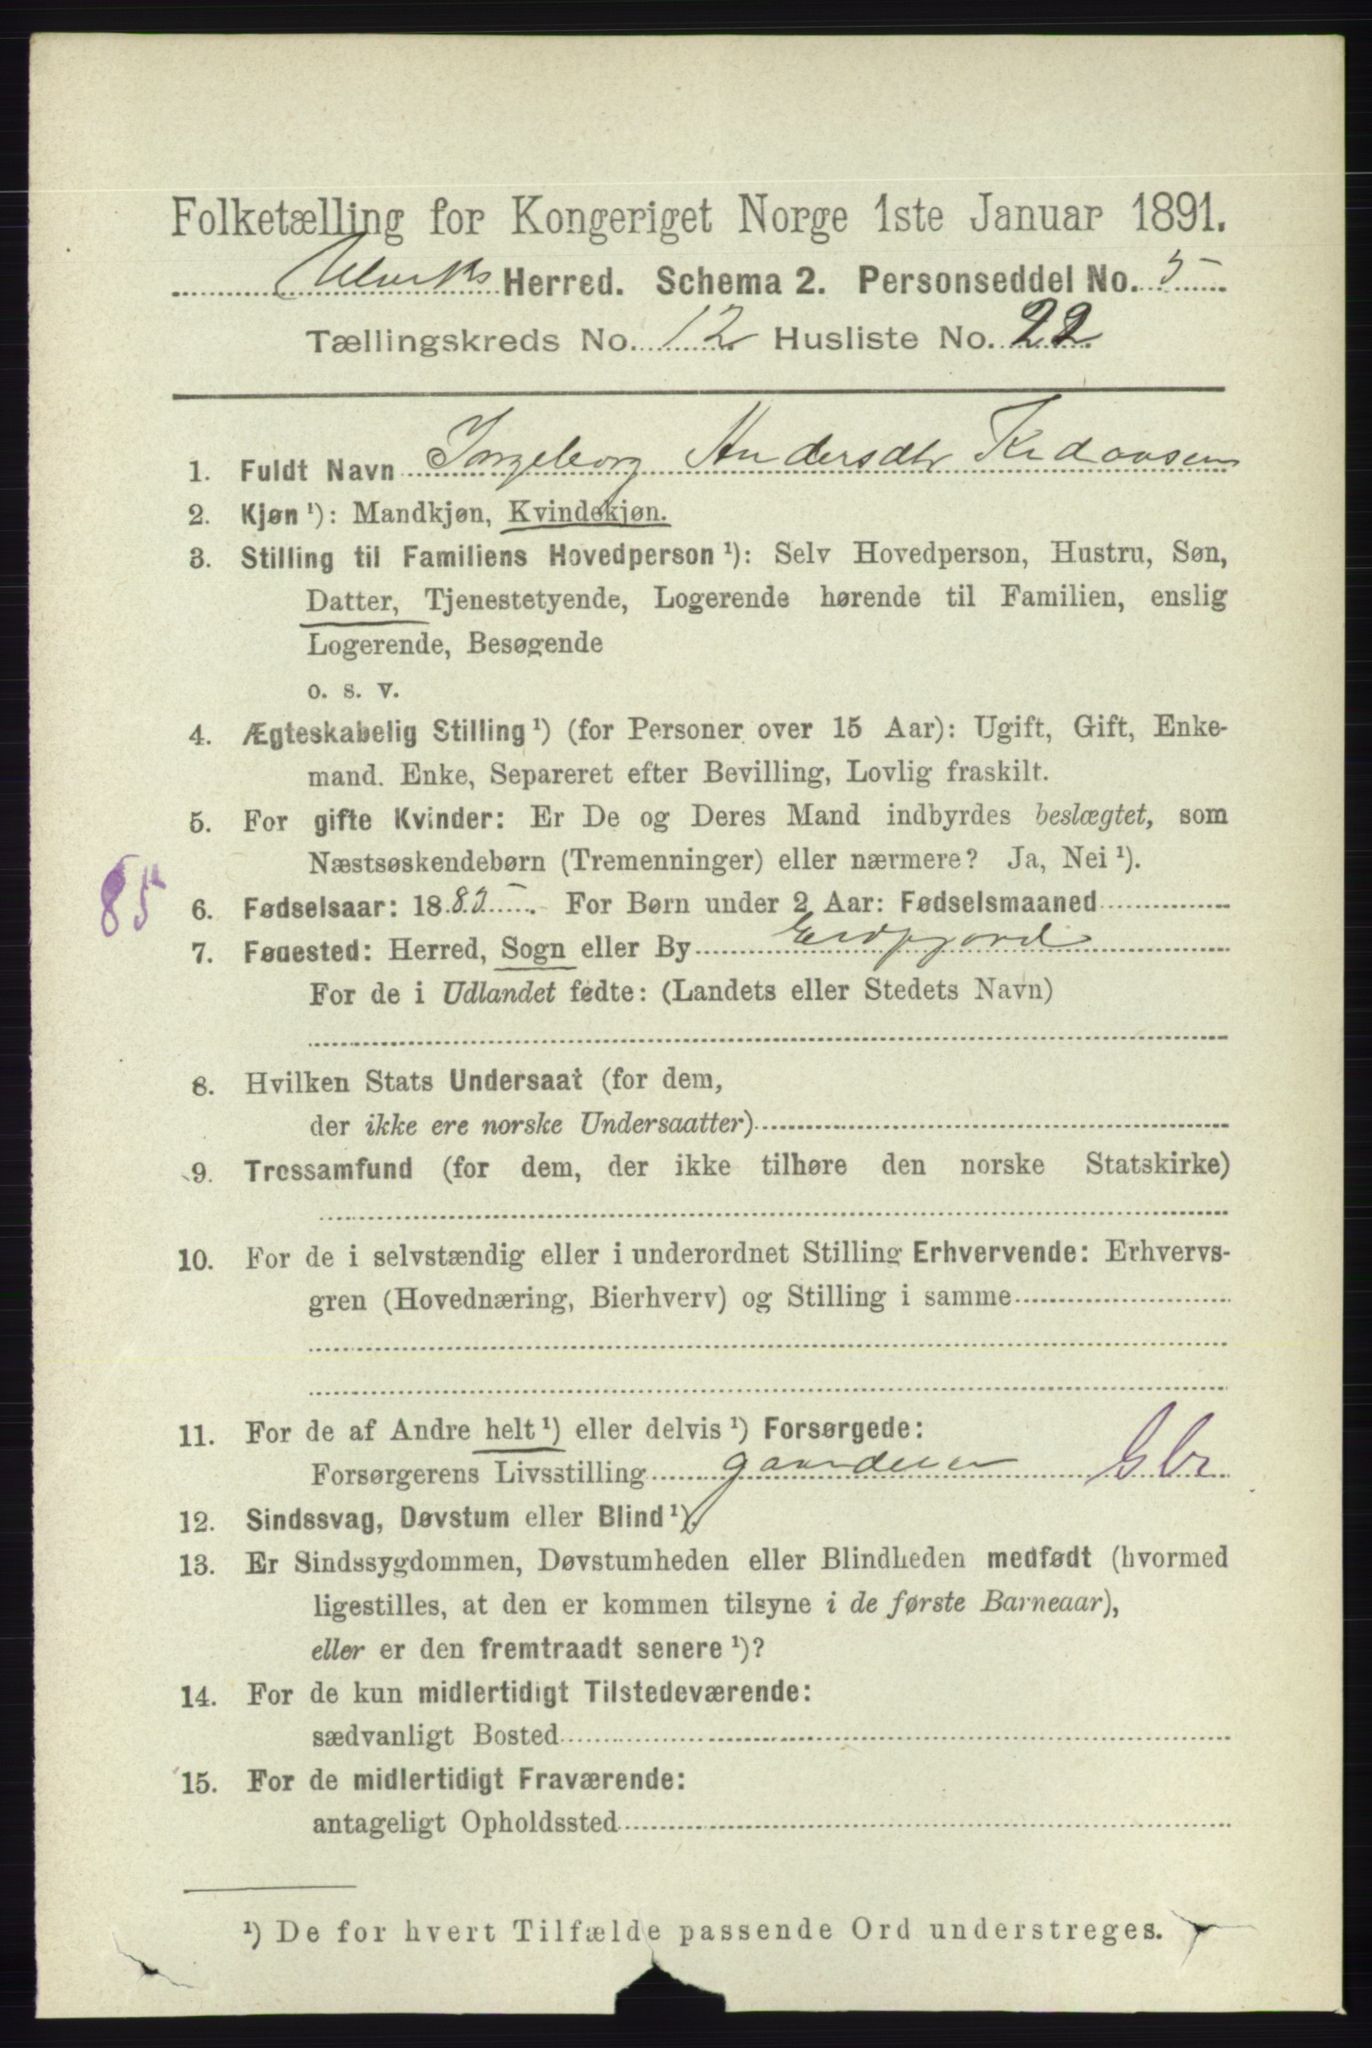 Folketælling for Kongeriget Norge 1ste Januar 1891.
Ulviks Herred. Schema 2. Personseddel No. 5
Tællingskreds No. 12 Husliste No. 22
1. Fuldt Navn Ingeborg Andersdtr
2. Kjøn ¹): Mandkjøn, Kvindekjøn.
3. Stilling til Familiens Hovedperson ¹): Selv Hovedperson, Hustru, Søn,
Datter, Tjenestetyende, Logerende hørende til Familien, enslig
Logerende, Besøgende
o. s. v.
4. Ægteskabelig Stilling ¹) (for Personer over 15 Aar): Ugift, Gift, Enke-
mand. Enke, Separeret efter Bevilling, Lovlig fraskilt.
5. For gifte Kvinder: Er De og Deres Mand indbyrdes beslægtet, som
Næstsøskendebørn (Tremenninger) eller nærmere? Ja, Nei ¹).
85
6. Fødselsaar: 1885. For Børn under 2 Aar: Fødselsmaaned
7. Fødested: Herred, Sogn eller By Eidfjord
For de i Udlandet fødte: (Landets eller Stedets Navn)
8. Hvilken Stats Undersaat (for dem,
der ikke ere norske Undersaatter)
9. Trossamfund (for dem, der ikke tilhøre den norske Statskirke)
10. For de i selvstændig eller i underordnet Stilling Erhvervende: Erhvervs-
gren (Hovednæring, Bierhverv) og Stilling i samme
11. For de af Andre helt ¹) eller delvis ¹) Forsørgede:
Forsørgerens Livsstilling Gbr
12. Sindssvag, Døvstum eller Blind ¹).
13. Er Sindssygdommen, Døvstumheden eller Blindheden medfødt (hvormed
ligestilles, at den er kommen tilsyne i de første Barneaar),
eller er den fremtraadt senere ¹)?
14. For de kun midlertidigt Tilstedeværende:
sædvanligt Bosted
15. For de midlertidigt Fraværende:
antageligt Opholdssted
¹) De for hvert Tilfælde passende Ord understreges.